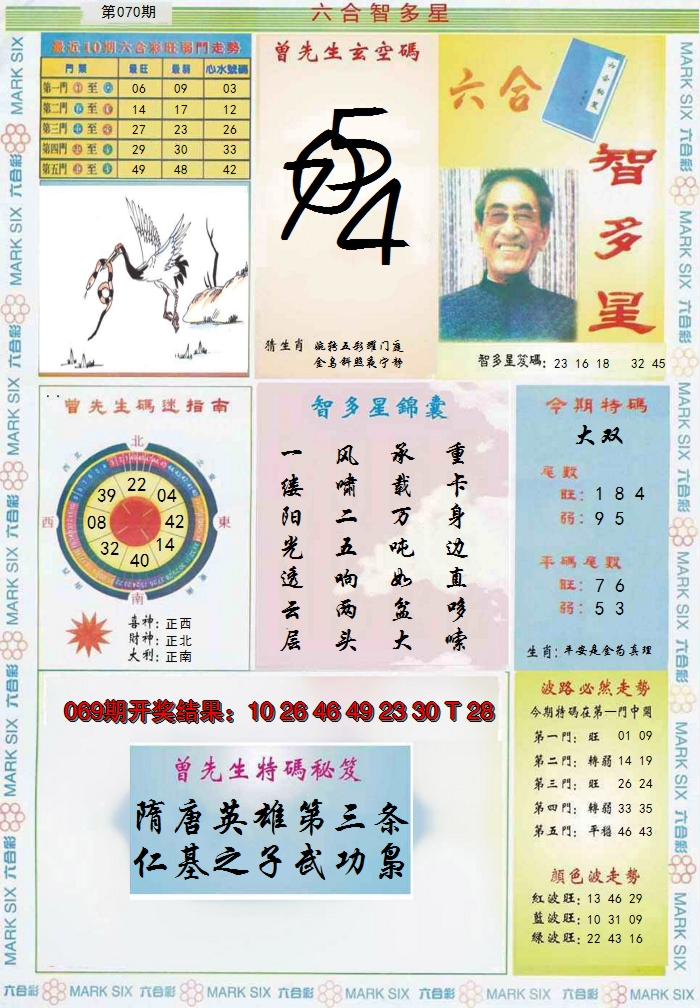 第070期
六合智多星
最近10期六合彩旺弱門走勢
門類 最旺 最弱 心水號碼
第一門 至 06 09 03
第二門 至 14 17 12
第三門 至 27 23 26
第四門 至 29 30 33
第五門 至 49 48 42
曾先生玄空碼
猜生肖 婉转五彩耀门庭
金乌斜照夜宁静
六合
智多星
智多星笈碼: 23 16 18 32 45
曾先生碼迷指南
北
西
東
南
22
04
42
14
40
32
08
39
喜神: 正西
財神: 正北
大利: 正南
智多星錦囊
重卡身边直哆嗦
承载万吨如盆大
风啸二五响两头
一缕阳光透云层
今期特碼
大双
尾數
旺: 1 8 4
弱: 9 5
平碼尾數
旺: 7 6
弱: 5 3
生肖: 平安是金为真理
069期开奖结果: 10 26 46 49 23 30 T 28
曾先生特碼秘笈
隋唐英雄第三条
仁基之子武功枭
波路必然走勢
今期特碼在第一門中開
第一門: 旺 01 09
第二門: 轉弱 14 19
第三門: 旺 26 24
第四門: 轉弱 33 35
第五門: 平穩 46 43
顏色波走勢
紅波旺: 13 46 29
藍波旺: 10 31 09
綠波旺: 22 43 16
MARK SIX 六合彩